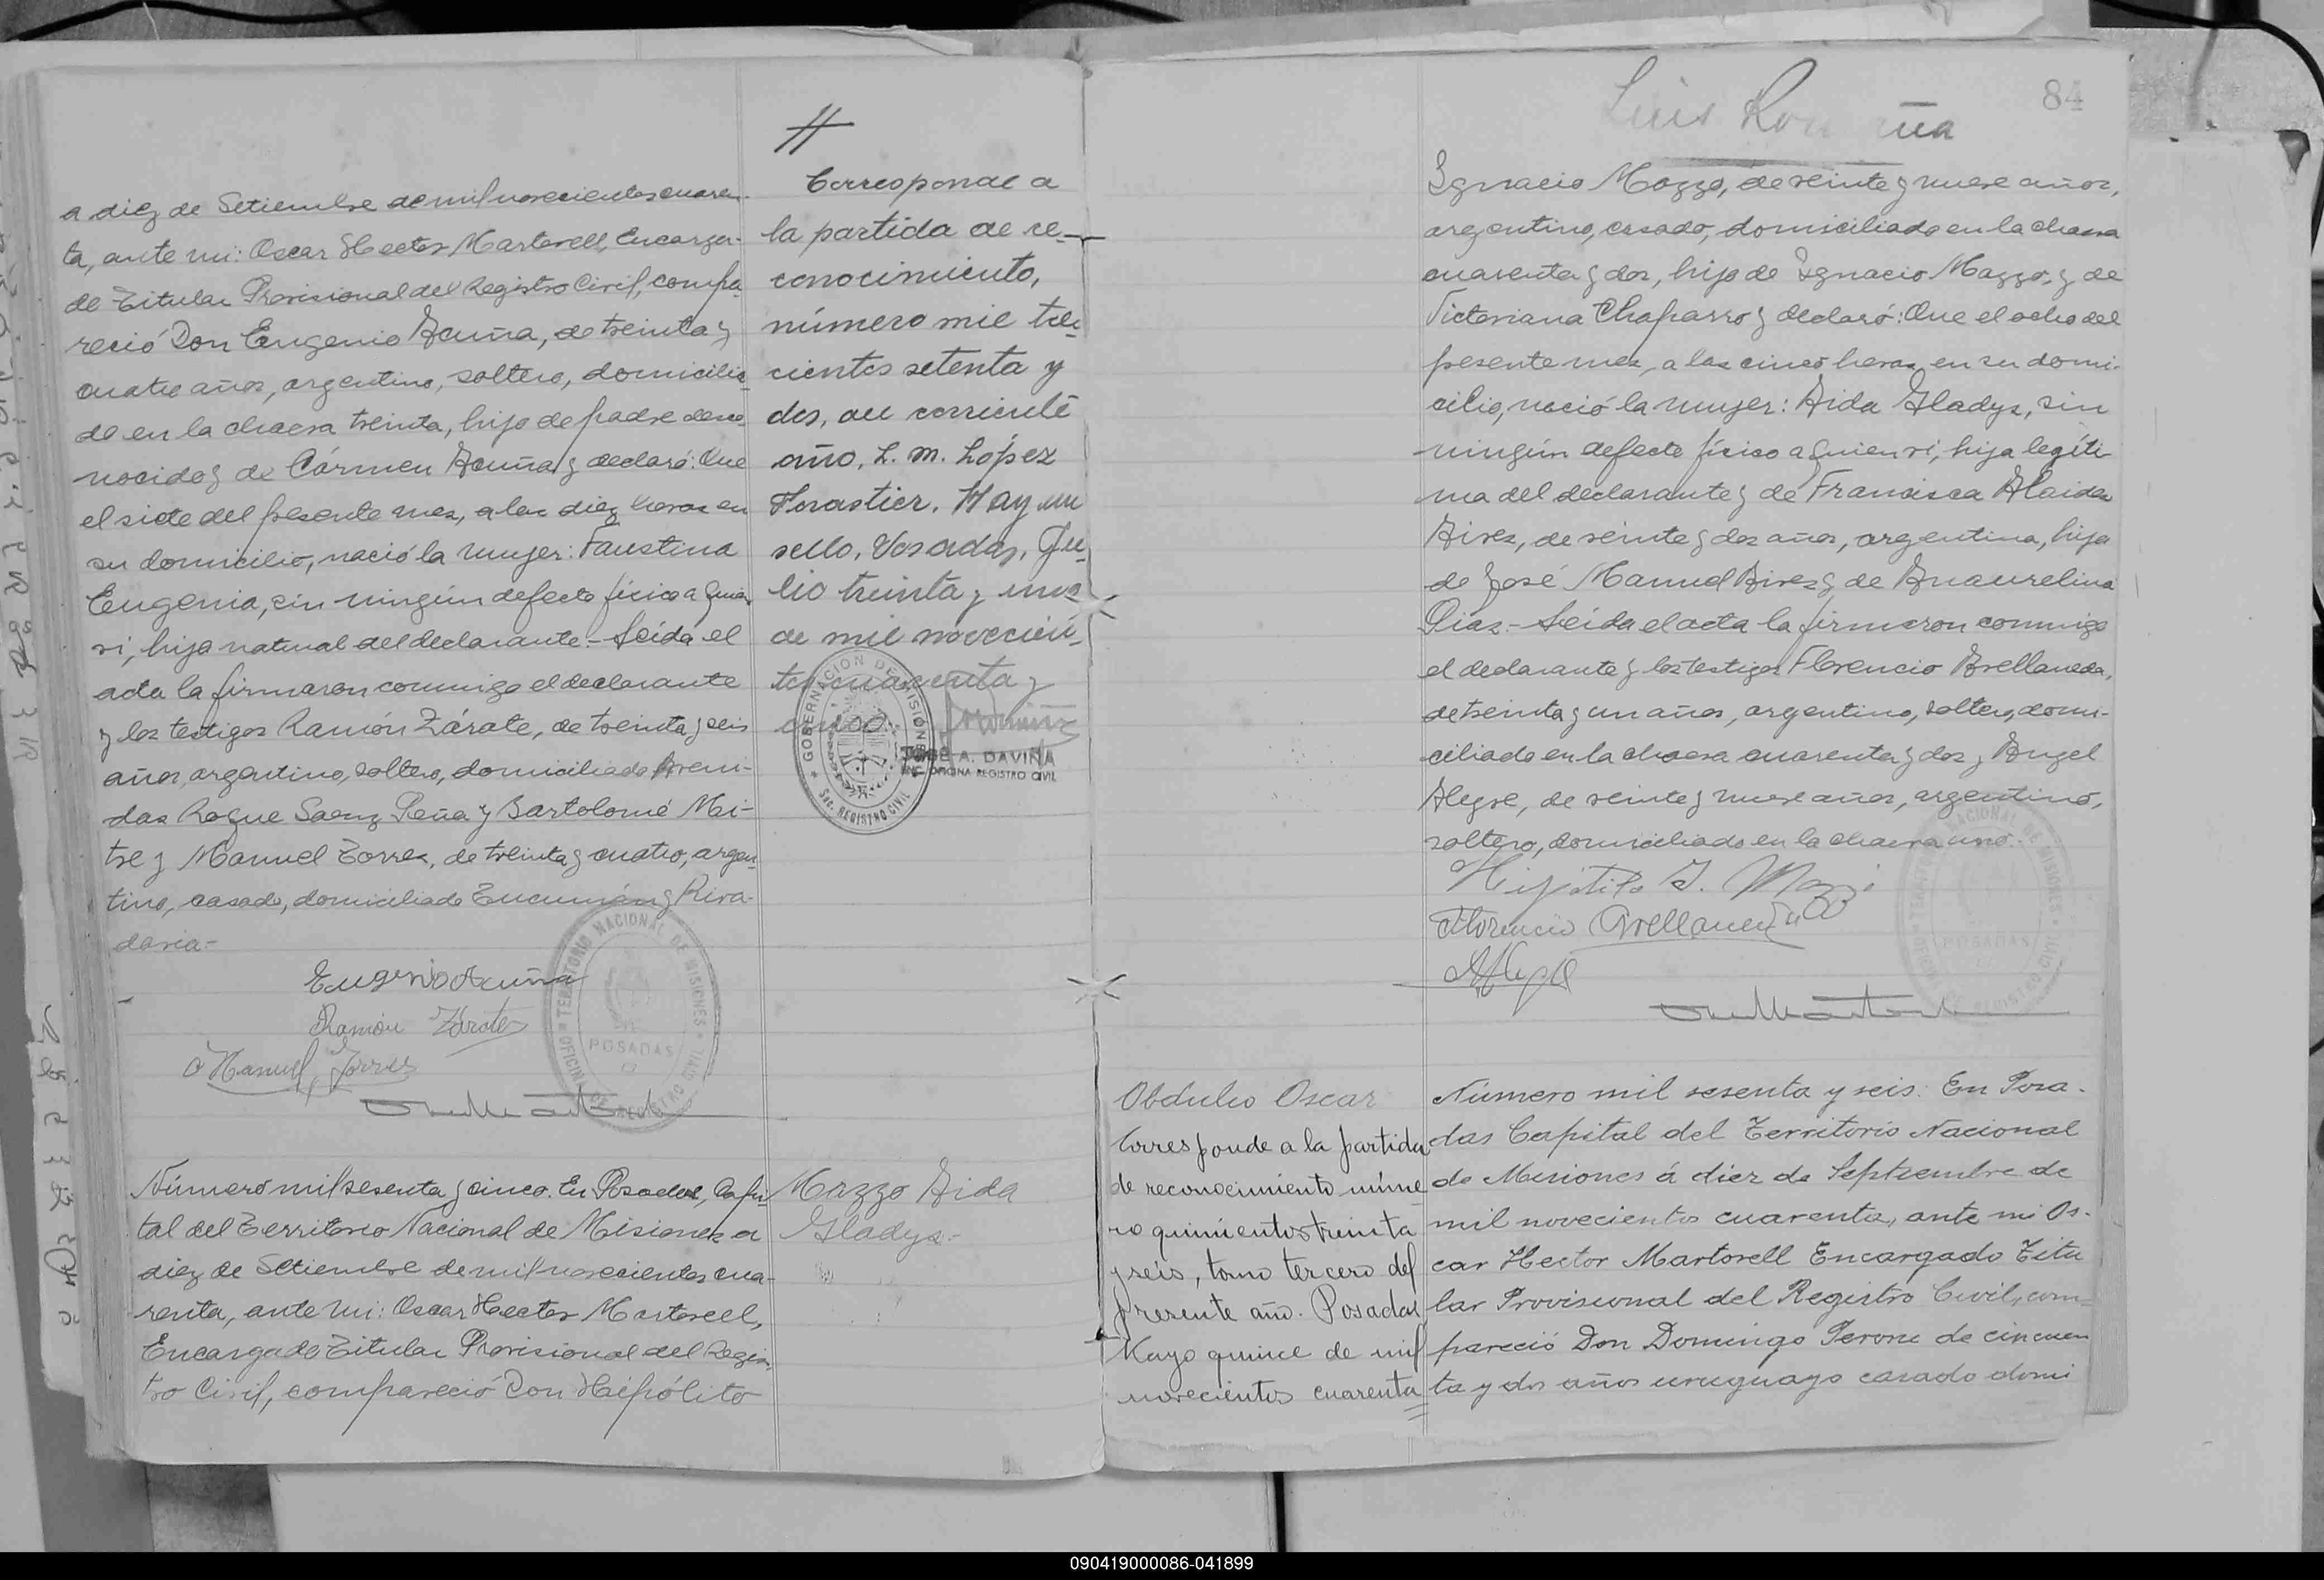 a diez de Setiembre de mil novecientos cuaren-
ta, ante mi: Oscar Hector Martorell, Encarga-
do Titular Provisional del Registro Civil, compa-
reció Don Eugenio Acuña, de treinta y
cuatro años, argentino, soltero, domicilia-
do en la chacra treinta, hijo de padre desco-
nocido y de Cármen Acuña y declaró: Que
el siete del presente mes, a las diez horas en
su domicilio, nació la mujer: Faustina
Eugenia, sin ningún defecto físico a quien
vi, hija natural del declarante.- Leída el
acta la firmaron conmigo el declarante
y los testigos Ramón Zárate, de treinta y seis
años, argentino, soltero, domiciliado Aveni-
das Roque Saenz Peña y Bartolomé Mi-
tre y Manuel Torres, de treinta y cuatro, argen-
tino, casado, domiciliado Tucumán y Riva-
davia.-
Eugenio Acuña
Ramón Zárate
Manuel Torres
TERRITORIO NACIONAL DE MISIONES
POSADAS
OFICINA DE REGISTRO CIVIL
Número mil sesenta y cinco. En Posadas, Capi-
tal del Territorio Nacional de Misiones a
diez de Setiembre de mil novecientos cua-
renta, ante mi: Oscar Hector Martorell,
Encargado Titular Provisional del Regis-
tro Civil, compareció Don Hipólito
//
Corresponde a
la partida de re-
conocimiento,
número mil tre-
cientos setenta y
dos, del corriente
año. L. M. López
Forastier. Hay un
sello. Posadas, Ju-
lio treinta y uno
de mil novecien-
tos cuarenta y
cinco.
GOBERNACION DE MISIONES
Sec. REGISTRO CIVIL
JORGE A. DAVIÑA
ENC. OFICINA REGISTRO CIVIL
Mazzo Aida
Gladys.-
84
Luis
Ignacio Mazzo, de veinte y nueve años,
argentino, casado, domiciliado en la chacra
cuarenta y dos, hijo de Ignacio Mazzo, y de
Victoriana Chaparro y declaró: Que el ocho del
presente mes, a las cinco horas, en su domi-
cilio, nació la mujer: Aida Gladys, sin
ningún defecto físico a quien vi, hija legíti-
ma del declarante y de Francisca Alaides
Aires, de veinte y dos años, argentina, hija
de José Manuel Aires y de Anaurelina
Dias.- Leída el acta la firmaron conmigo
el declarante y los testigos Florencio Avellaneda,
de treinta y un años, argentino, soltero, domi-
ciliado en la chacra cuarenta y dos y Angel
Alegre, de veinte y nueve años, argentino,
soltero, domiciliado en la chacra uno.
Hipólito I. Mazzo
Florencio Avellaneda
POSADAS
Obdulio Oscar
Corresponde a la partida
de reconocimiento núme
ro quinientos treinta
y seis, tomo tercero del
presente año. Posadas
Mayo quince de mil
novecientos cuarenta
Número mil sesenta y seis. En Posa-
das Capital del Territorio Nacional
de Misiones á diez de Septiembre de
mil novecientos cuarenta, ante mi Os-
car Hector Martorell Encargado Titu
lar Provisional del Registro Civil, com-
pareció Don Domingo Perone de cincuen
ta y dos años uruguayo casado domi
090419000086-041899